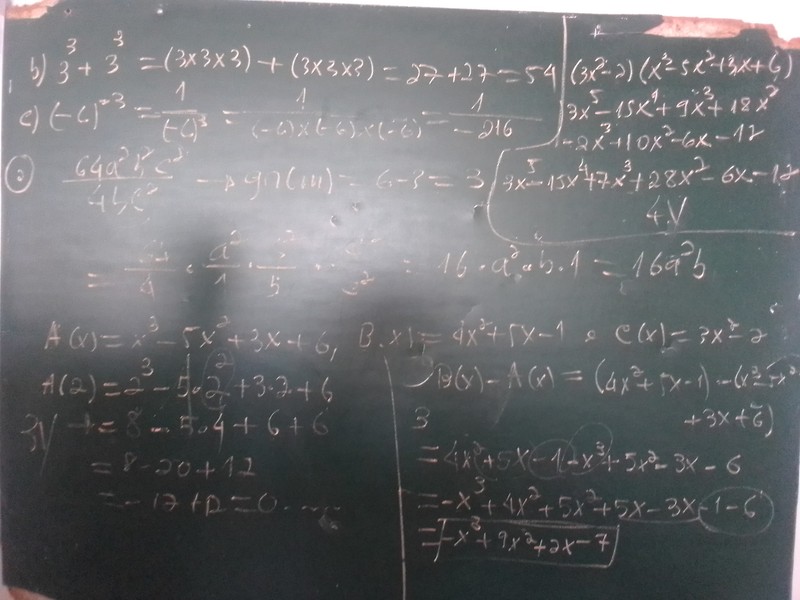 b) 3³ + 3³ = (3x3x3) + (3x3x3) = 27+27 = 54
c) (-6)⁻³ = 1/(-6)³ = 1/((-6)x(-6)x(-6)) = 1/-216
(3x²-2)(x³-5x²+3x+6)
3x⁵-15x⁴+9x³+18x²
-2x³+10x²-6x-12
3x⁵-15x⁴+7x³+28x²-6x-12
4V
= 6-3 = 3
= 16·a²·b·1 = 16a²b
A(x) = x³-5x²+3x+6, B(x) = 4x²+5x-1 e C(x) = 3x²-2
A(2) = 2³-5·2²+3·2+6
3V = 8-5·4+6+6
= 8-20+12
= -12+12=0
B(x)-A(x) = (4x²+5x-1)-(x³-5x²
3 +3x+6)
= 4x²+5x-1-x³+5x²-3x-6
= -x³+4x²+5x²+5x-3x-1-6
= -x³+9x²+2x-7